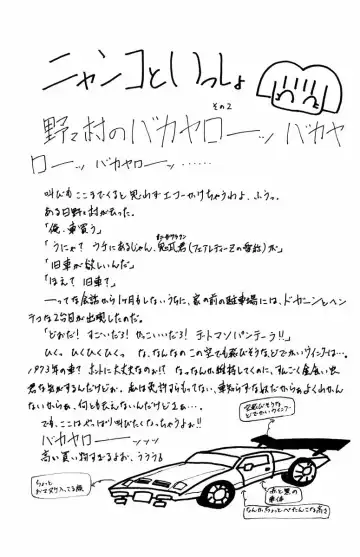 ニャンコといっしょ
その2
野々村のバカヤローーッ バカヤ
ローーッ バカヤローーッ……
叫びもここまでくると思わずエコーかけちゃうわよ、ふうっ。
ある日野々村が言った。
「俺、車買う」
「うにゃ? ウチにあるじゃん、鬼瓦君(フェアレディーZの愛称)が」
「旧車が欲しいんだ」
「ほえ? 旧車?」
――ってな会話から1ヶ月もしないうちに、家の前の駐車場には、ドカーンとヘン
テコな2台目が出現したのだ。
「どおだ! すごいだろ! かっこいいだろ! デ・トマソパンテーラ!!」
ひくっ ひくひくひくっ な、なんなの この空でも飛びそうなどでかいウイングは…。
1973年の車? ホントに大丈夫なのぉ!? なっなんか維持してくのに、すんごく金食い虫
君な気がするんだけどぉ。私は免許すらもってない、乗らずな奴だからぁよくわかん
ないからぁ、何とも言えないんだけどさぁ…。
でも、ここはやっぱり叫びたくなっちゃうよぉ!!
バカヤローーッッッ
高い買い物すぎるよお、うううう
空飛びそうな
どでかいウイング
ちょっと
おてつき入ってる顔
赤と黒の
車体
なんか、ちょっとぺたんこな高さ